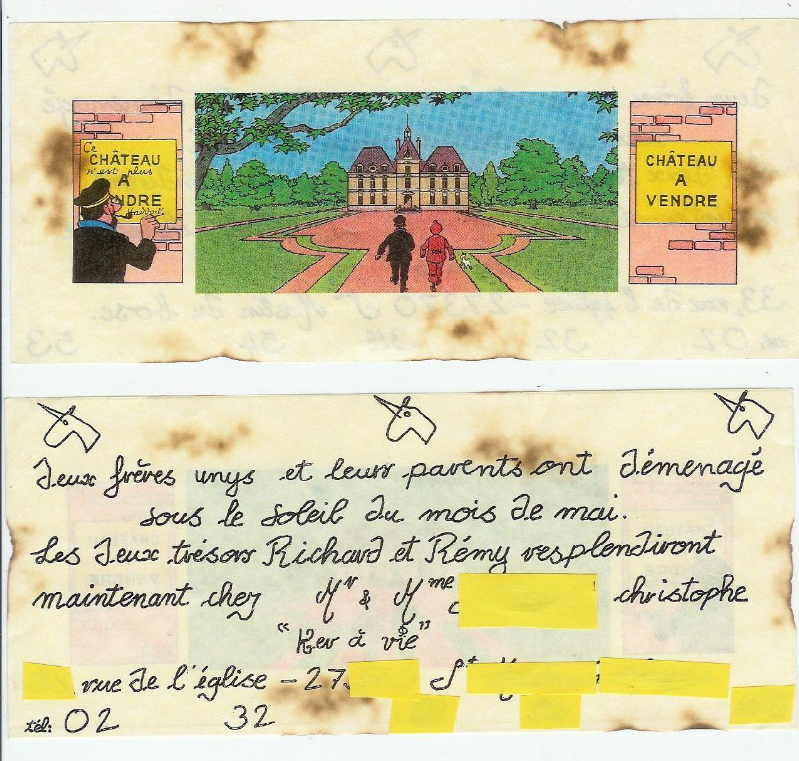 Ce
CHÂTEAU
n'est plus
A
NDRE
CHÂTEAU
A
VENDRE
Deux frères unys et leurs parents ont déménagé
sous le soleil du mois de mai.
Les deux trésors Richard et Rémy resplendiront
maintenant chez Mr & Mme christophe
"Ker à vie"
rue de l'église - 27 St
tél: 02 32